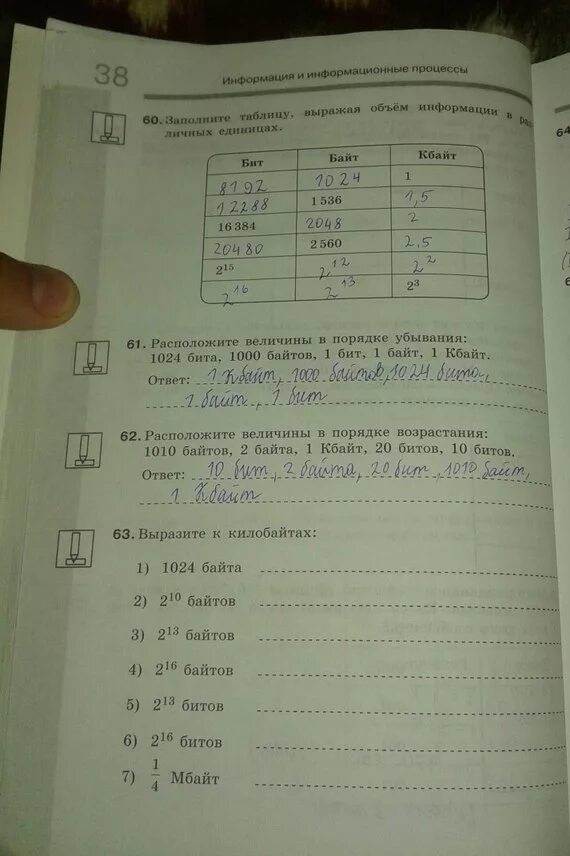 38
Информация и информационные процессы
60. Заполните таблицу, выражая объём информации в раз
личных единицах.
Бит Байт Кбайт
8192 1024 1
12288 1 536 1,5
16 384 2048 2
20480 2 560 2,5
2¹⁵ 2¹² 2²
2¹⁶ 2¹³ 2³
61. Расположите величины в порядке убывания:
1024 бита, 1000 байтов, 1 бит, 1 байт, 1 Кбайт.
Ответ: 1 Кбайт, 1000 байтов, 1024 бита,
1 байт, 1 бит
62. Расположите величины в порядке возрастания:
1010 байтов, 2 байта, 1 Кбайт, 20 битов, 10 битов.
Ответ: 10 бит, 2 байта, 20 бит, 1010 байт,
1 Кбайт
63. Выразите к килобайтах:
1) 1024 байта
2) 2¹⁰ байтов
3) 2¹³ байтов
4) 2¹⁶ байтов
5) 2¹³ битов
6) 2¹⁶ битов
7) 1/4 Мбайт
64